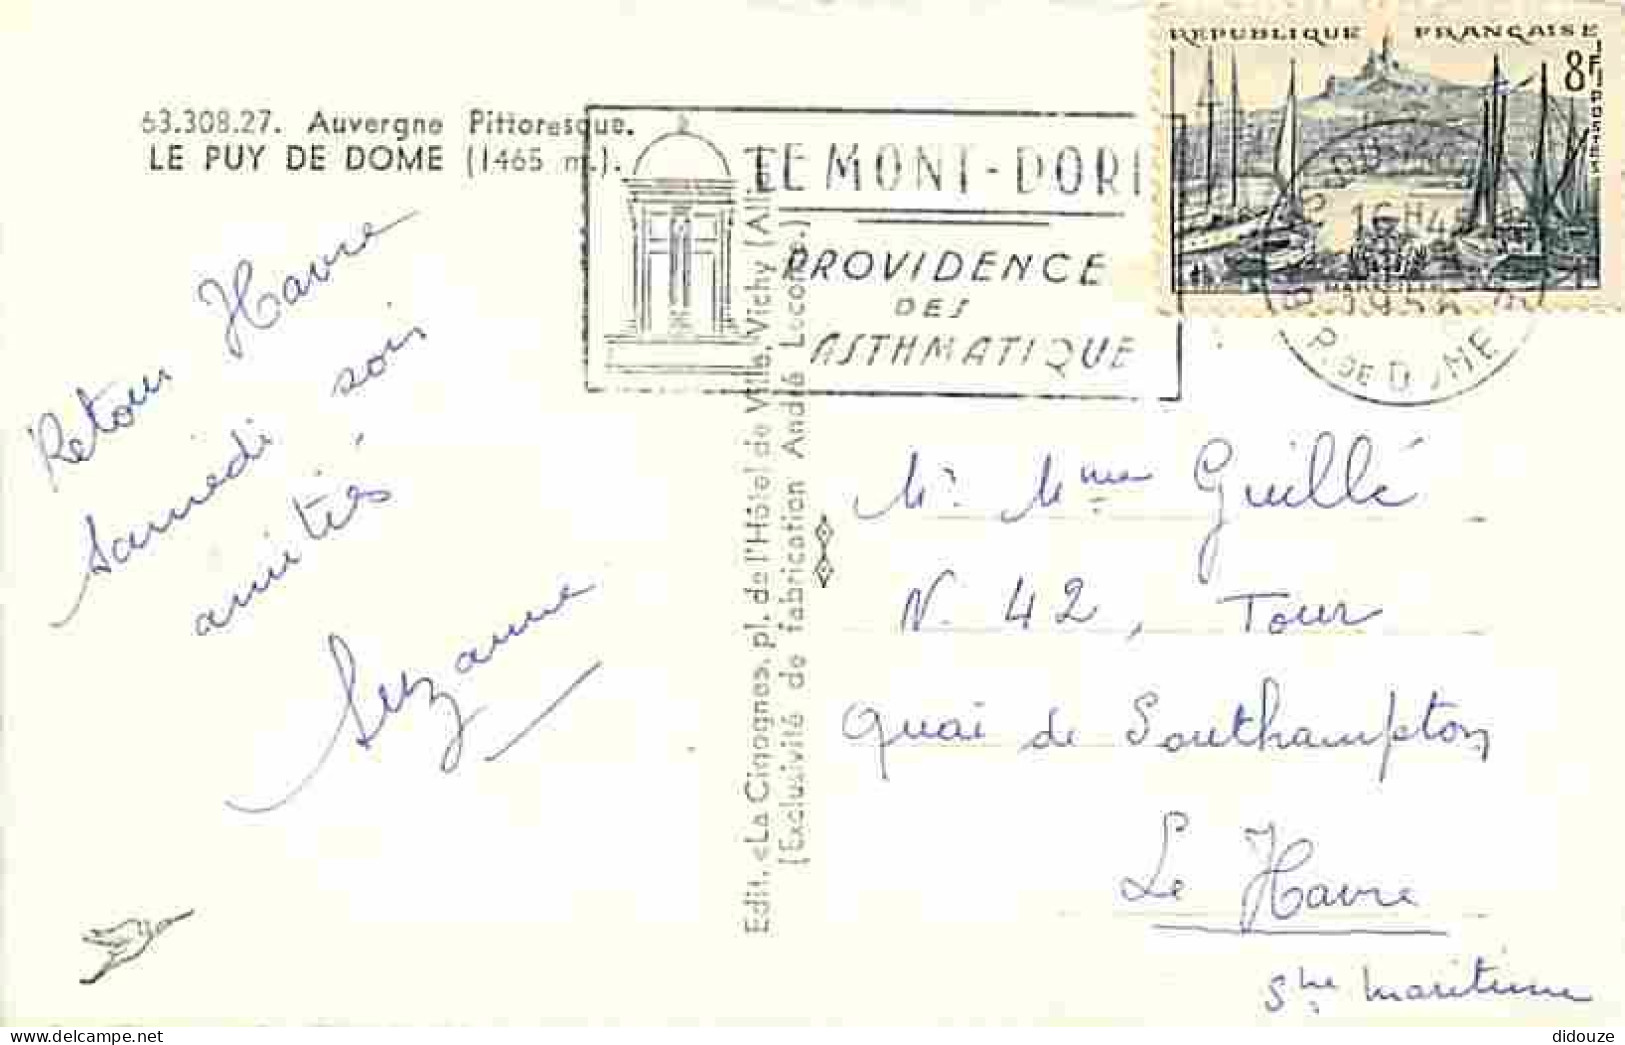 63.308.27. Auvergne Pittoresque.
LE PUY DE DOME (1465 m.).
Retour Havre
Samedi soir
amitiés
Suzanne
Edit. «La Cigogne», pl. de l'Hôtel de Ville, Vichy (Allier)
(Exclusivité de fabrication André Leconte.)
LE MONT-DORE
PROVIDENCE
DES
ASTHMATIQUE
REPUBLIQUE FRANÇAISE
8F
MARSEILLE
16H45
P. DE DOME
Mr. Mme Guillé
N. 42, Tour
Quai de Southampton
Le Havre
Sne maritime
didouze